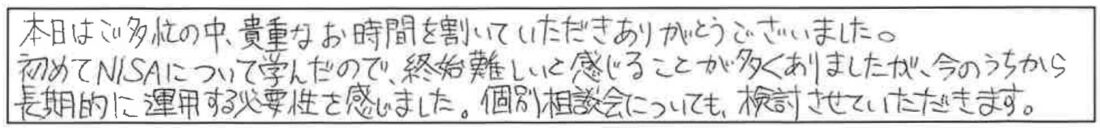 本日はご多忙の中、貴重なお時間を割いていただきありがとうございました。
初めてNISAについて学んだので、終始難しいと感じることが多くありましたが、今のうちから
長期的に運用する必要性を感じました。個別相談会についても、検討させていただきます。